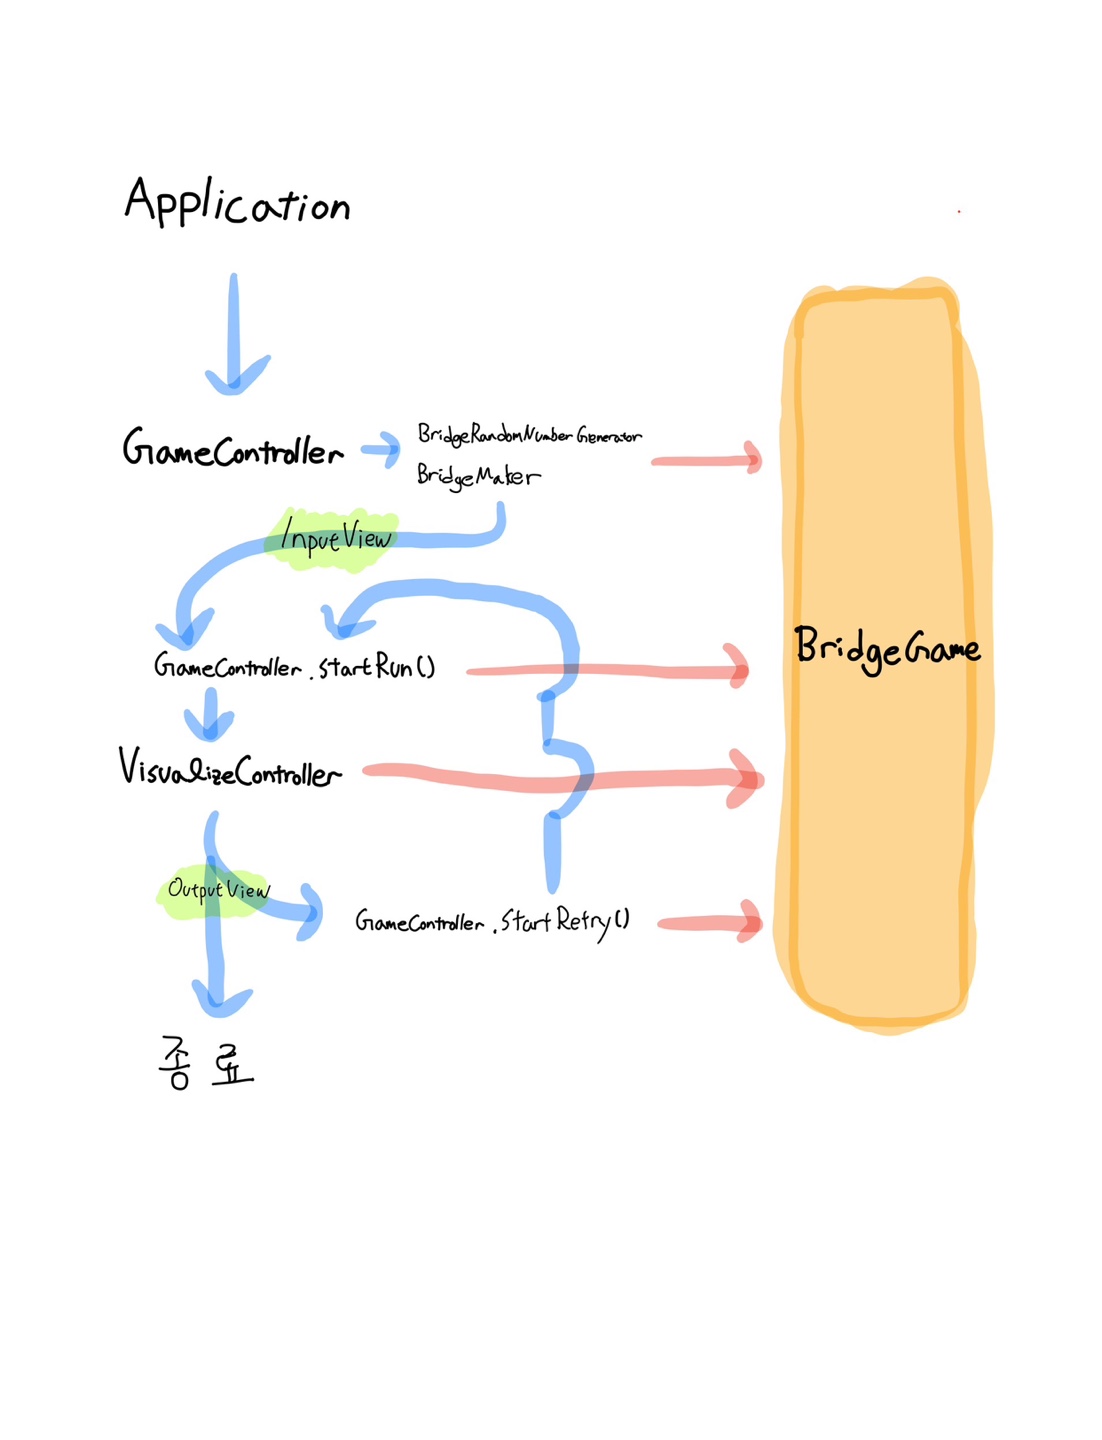 Application
GameController
BridgeRandomNumberGenerator
BridgeMaker
InputView
GameController.startRun()
BridgeGame
VisualizeController
OutputView
GameController.startRetry()
종료